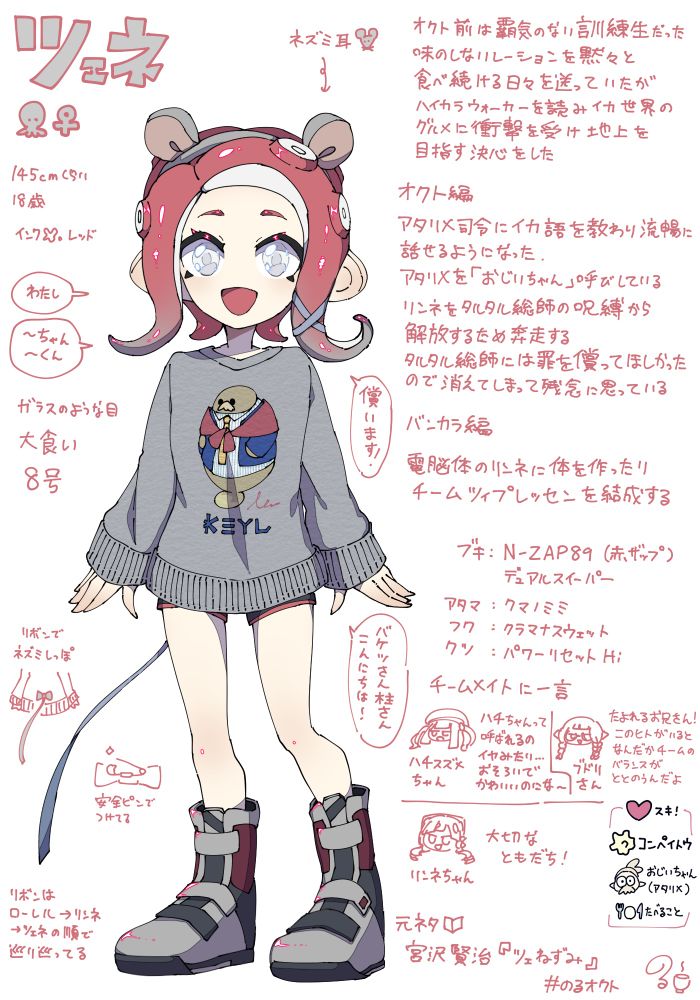 ツェネ
♀
145cmくらい
18歳
インク色. レッド
わたし
〜ちゃん
〜くん
ガラスのような目
大食い
8号
リボンで
ネズミしっぽ
安全ピンで
つけてる
リボンは
ローレル→リンネ
→ツェネの順で
巡り巡ってる
ネズミ耳
償います!
KEYL
バケツさん柱さん
こんにちは!
オクト前は覇気のない訓練生だった
味のしないレーションを黙々と
食べ続ける日々を送っていたが
ハイカラウォーカーを読みイカ世界の
グルメに衝撃を受け地上を
目指す決心をした
オクト編
アタリメ司令にイカ語を教わり流暢に
話せるようになった.
アタリメを「おじいちゃん」呼びしている
リンネをタルタル総帥の呪縛から
解放するため奔走する
タルタル総帥には罪を償ってほしかった
ので消えてしまって残念に思っている
バンカラ編
電脳体のリンネに体を作ったり
チームツィプレッセンを結成する
ブキ: N-ZAP89 (赤ザップ)
デュアルスイーパー
アタマ : クマノミミ
フク : クラマナスウェット
クツ : パワーリセット Hi
チームメイトに一言
ハチスズメ
ちゃん
ハチちゃんって
呼ばれるの
イヤみたい…
おそろいで
かわいいのにな〜
ブドリ
さん
たよれるお兄さん!
このヒトがいると
なんだかチームの
バランスが
ととのうんだよ
リンネちゃん
大切な
ともだち!
スキ!
コンペイトウ
おじいちゃん
(アタリメ)
たべること
元ネタ
宮沢賢治『ツェねずみ』
#のるオクト